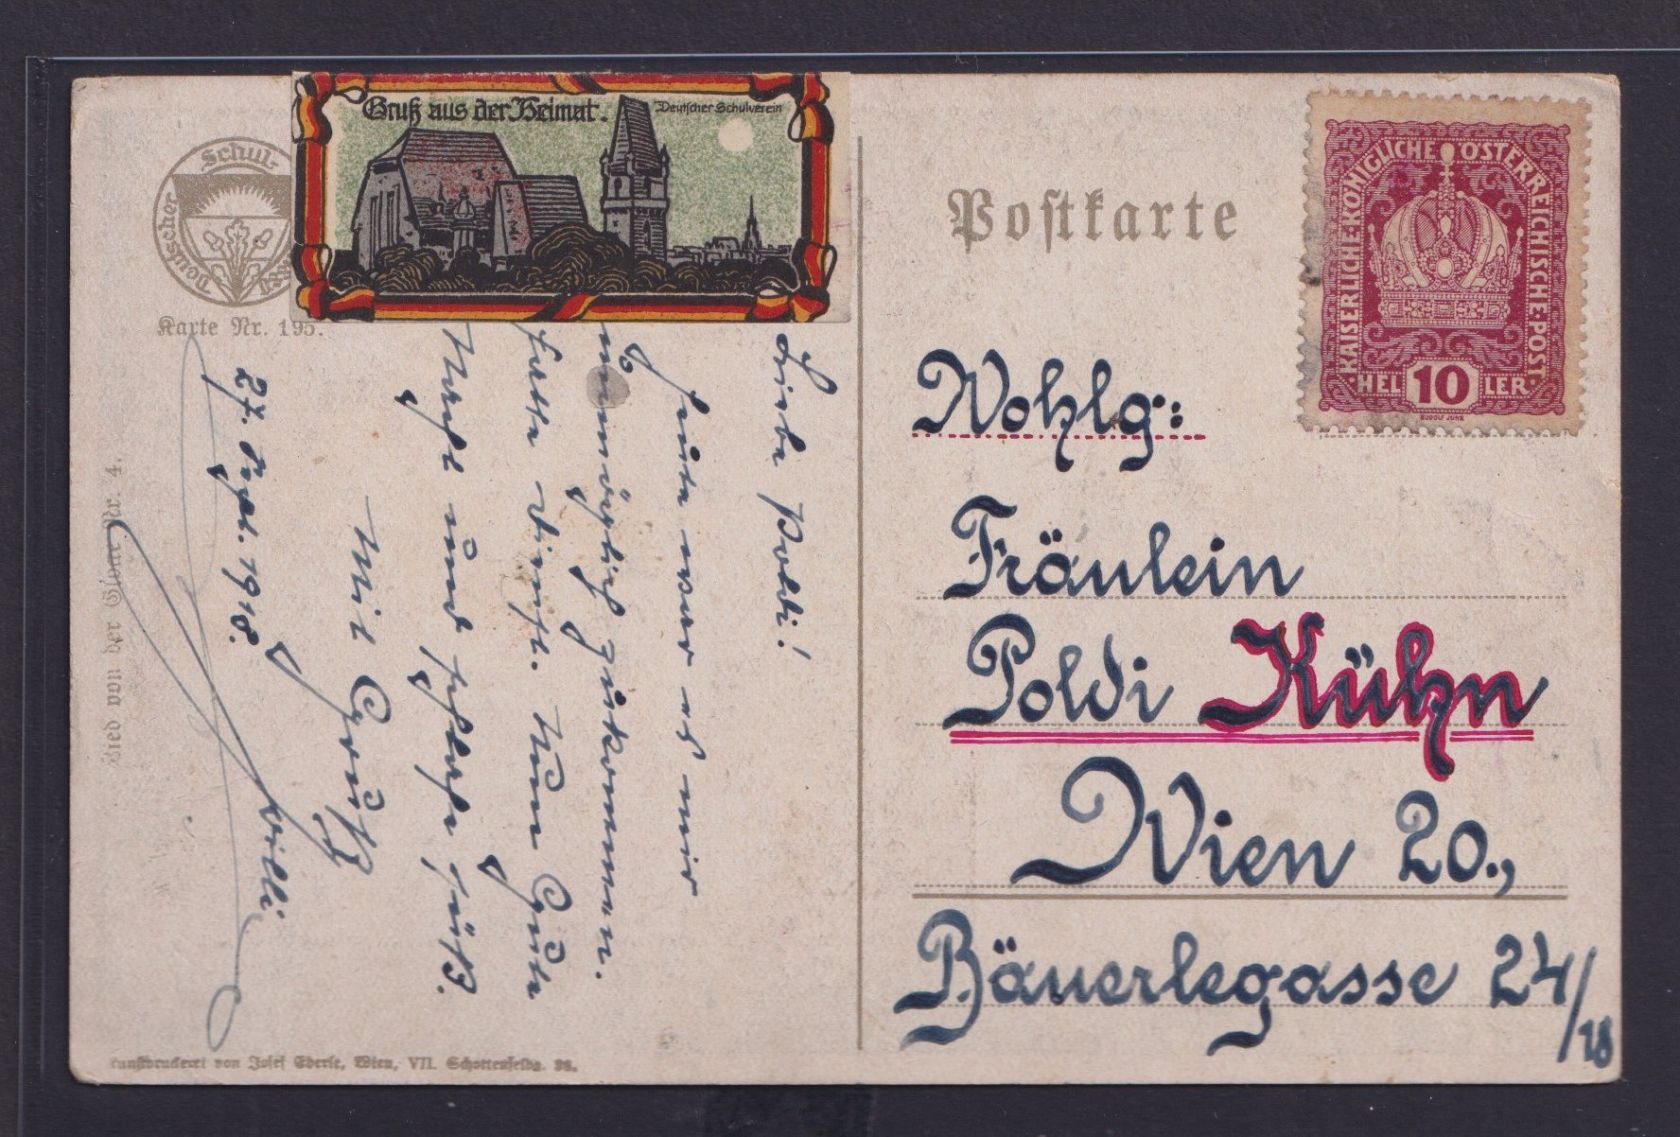 Deutscher Schul-
Karte Nr. 195.
Gruß aus der Heimat.
Deutscher Schulverein
Lied von der Glocke Nr. 4.
Liebe Poldi!
Heute war es mir
unmöglich zukommen.
hatte Dienst. Nun Gute
Nacht und schlafe süß.
Mit Gruß
Willi
27. Sept. 1918.
Kunstdruckerei von Josef Eberle, Wien, VII. Schottenfeldg. 38.
Postkarte
KAISERLICHE KÖNIGLICHE ÖSTERREICHISCHE POST
HEL 10 LER
Wohlg:
Fräulein
Poldi Kühn
Wien 20.,
Bäuerlegasse 24/18